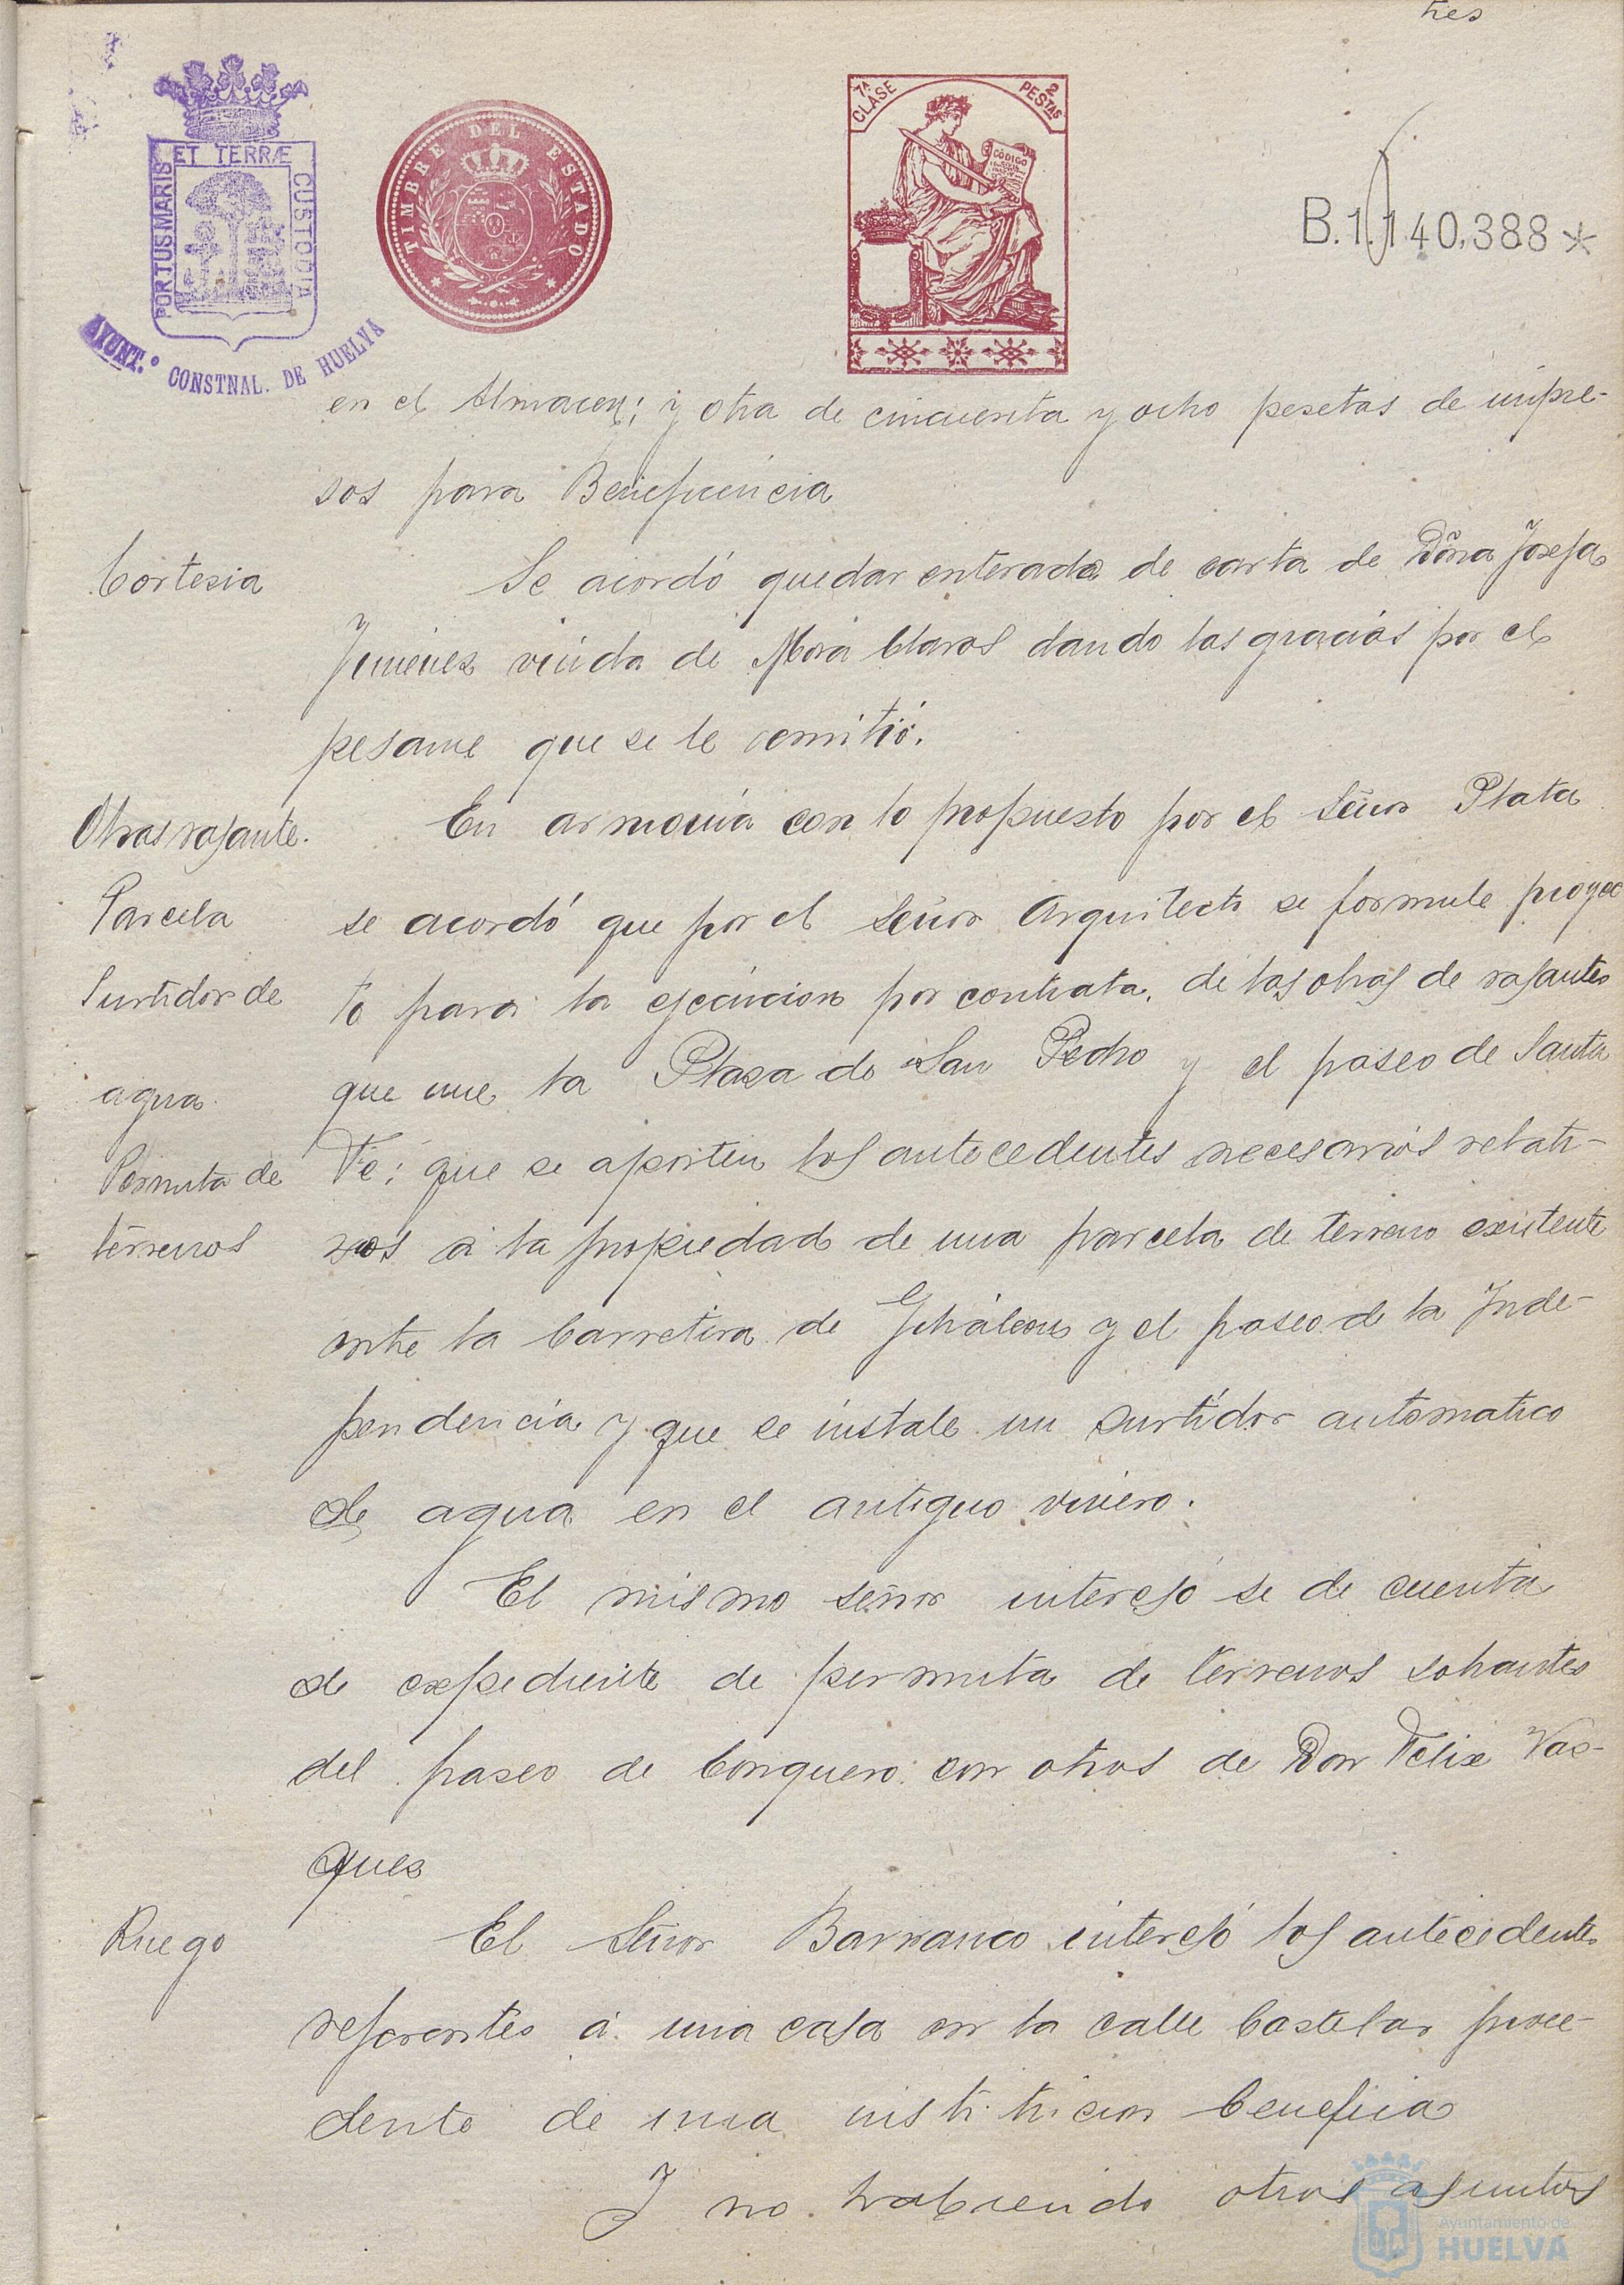 tres
ET TERRÆ
PORTUS MARIS
CUSTODIA
AYUNT.º CONSTNAL. DE HUELVA
TIMBRE DEL ESTADO
7ª CLASE
2 PESTAS
CÓDIGO
B.1.140.388*
en el Almacen; y otra de cincuenta y ocho pesetas de impre-
sos para Beneficencia
Cortesia
Se acordó quedar enterada de carta de Doña Josefa
Jimenez viuda de Mora Claros dando las gracias por el
pesame que se le remitió.
Obras rasante.
Parcela
Surtidor de
agua.
Permuta de
terrenos
En armonia con lo propuesto por el Señor Plata
se acordó que por el Señor Arquitecto se formule proyec
to para la ejecucion por contrata, de las obras de rasantes
que une la Plaza de San Pedro y el paseo de Santa
Fe; que se aporten los antecedentes necesarios relati-
vos á la propiedad de una parcela de terreno existente
entre la Carretera de Gibraleon y el paseo de la Inde-
pendencia y que se instale un surtidor automatico
de agua en el antiguo vivero.
El mismo señor interesó se de cuenta
de expediente de permuta de terrenos sobrantes
del paseo de Conquero con otros de Don Felix Vas-
ques
Ruego
El Señor Barranco interesó los antecedentes
referentes á una casa en la calle Castelar proce-
dente de una institucion benefica
Y no habiendo otros asuntos
Ayuntamiento de
HUELVA